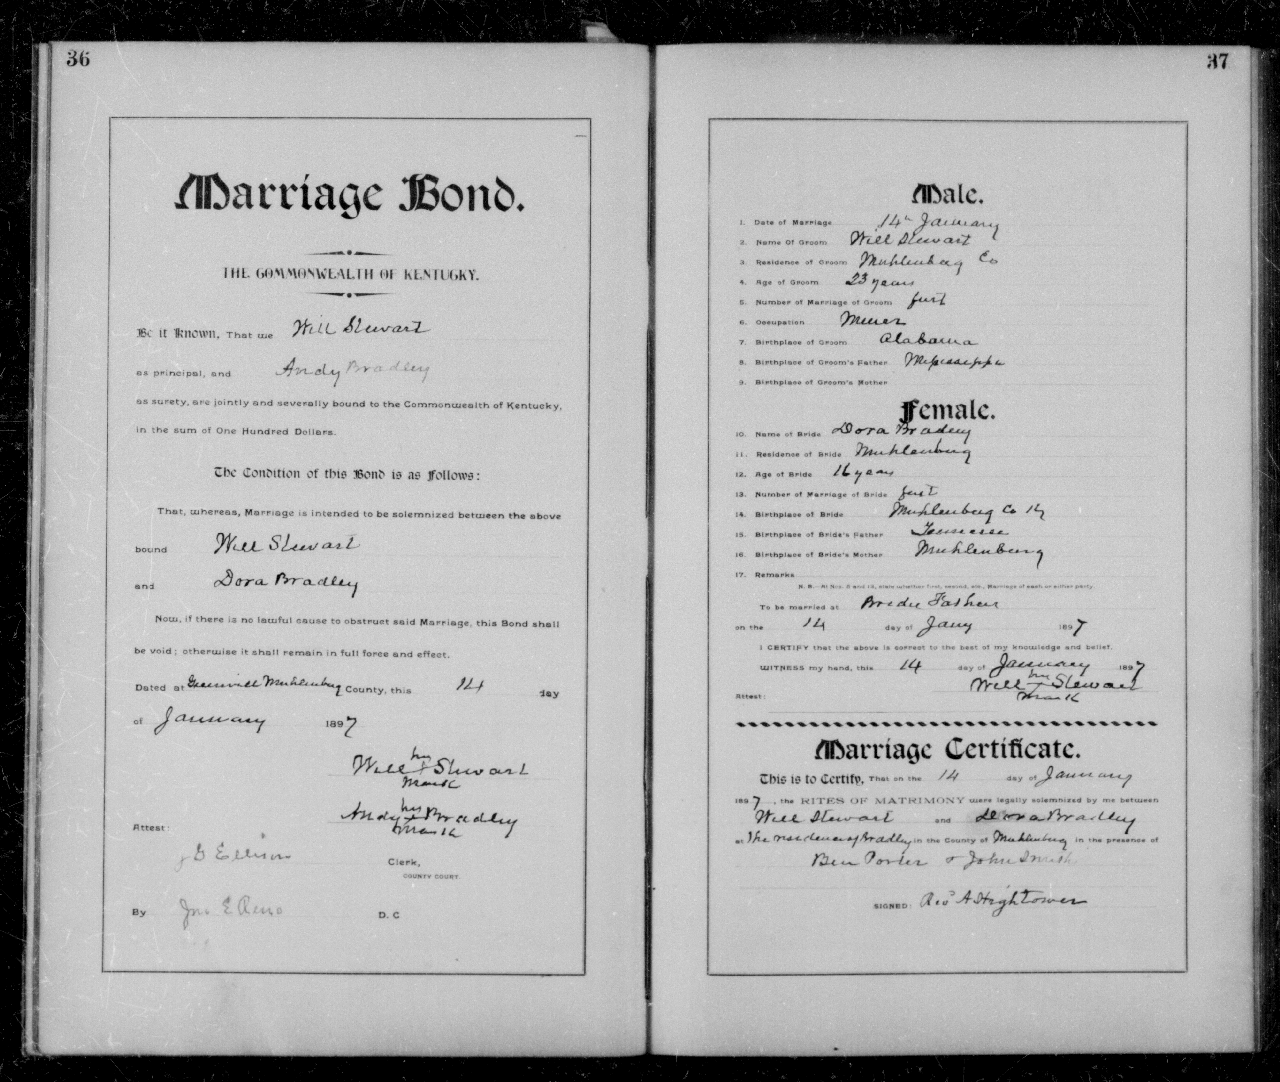 36
Marriage Bond.
THE COMMONWEALTH OF KENTUCKY.
Be it Known, That we Will Stewart
as principal, and Andy Bradley
as surety, are jointly and severally bound to the Commonwealth of Kentucky,
in the sum of One Hundred Dollars.
The Condition of this Bond is as Follows:
That, whereas, Marriage is intended to be solemnized between the above
bound Will Stewart
and Dora Bradley
Now, if there is no lawful cause to obstruct said Marriage, this Bond shall
be void; otherwise it shall remain in full force and effect.
Dated at Greenville Muhlenburg County, this 14 day
of January 1897
his
Will + Stewart
mark
his
Andy + Bradley
mark
Attest:
J G Ellison Clerk,
COUNTY COURT.
By Jno E Reno D. C
37
Male.
1. Date of Marriage 14th January
2. Name Of Groom Will Stewart
3. Residence of Groom Muhlenburg Co
4. Age of Groom 23 years
5. Number of Marriage of Groom first
6. Occupation Miner
7. Birthplace of Groom Alabama
8. Birthplace of Groom's Father Mississippi
9. Birthplace of Groom's Mother
Female.
10. Name of Bride Dora Bradley
11. Residence of Bride Muhlenburg
12. Age of Bride 16 years
13. Number of Marriage of Bride first
14. Birthplace of Bride Muhlenburg Co Ky
15. Birthplace of Bride's Father Tennessee
16. Birthplace of Bride's Mother Muhlenburg
17. Remarks
N. B.—At Nos. 5 and 13, state whether first, second, etc., Marriage of each or either party.
To be married at Bride Fathers
on the 14 day of Jany 1897
I CERTIFY that the above is correct to the best of my knowledge and belief.
WITNESS my hand, this 14 day of January 1897
his
Will + Stewart
mark
Attest:
Marriage Certificate.
This is to Certify, That on the 14 day of January
1897, the RITES OF MATRIMONY were legally solemnized by me between
Will Stewart and Dora Bradley
at The residence of Bradley in the County of Muhlenburg in the presence of
Ben Porter & John Smith
SIGNED: Rev A Hightower